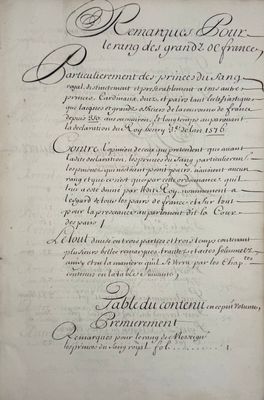 Remarques Pour
le rang des grandz de france,
Particulierement des princes du sang
royal, distinctement et preferablement a tous autre
princes, Cardinaux, ducz, et pairs tant ecclesiastiques
que laiques et grandz officiers de la couronne de france
depuis ans au moins, et longtemps auparavant
la declaration du Roy henry 3e de l'an 1576.
Contre l'opinion de ceux qui pretendent que avant
ladite declaration, les princes du sang, particulierement
les puisnez, qui n'estoient point pairs, n'avoient aucun
rang et que ce n'est que par cette ordonnance, qui
leur a esté donné par Roy, nommement a
l'egard de tous les pairs de france, et sur tout
pour la preseance au parlement dit la Cour
des pairs /
Le tout divisé en trois parties et trois temps contenant
plusieurs belles remarques, traittez et actes solemnelz
suivant la maniere qu'il se verra par les Chap
contenus en la table suivante,
Table du contenu en ce pnt volume,
Premierement
Remarques pour le rang de Messeigrs
les princes du sang royal fol. 1.